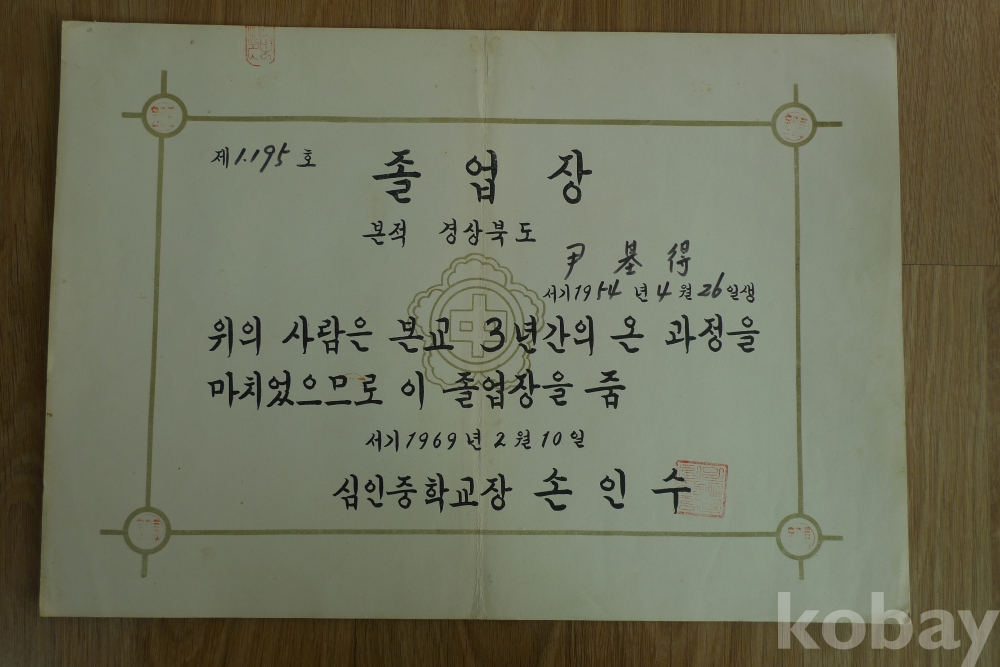 제 1.195 호
졸업장
본적 경상북도
尹基得
서기1954년 4월 26일생
中
위의 사람은 본교 3년간의 온 과정을
마치었으므로 이 졸업장을 줌
서기1969년 2월 10일
심인중학교장 손인수
kobay